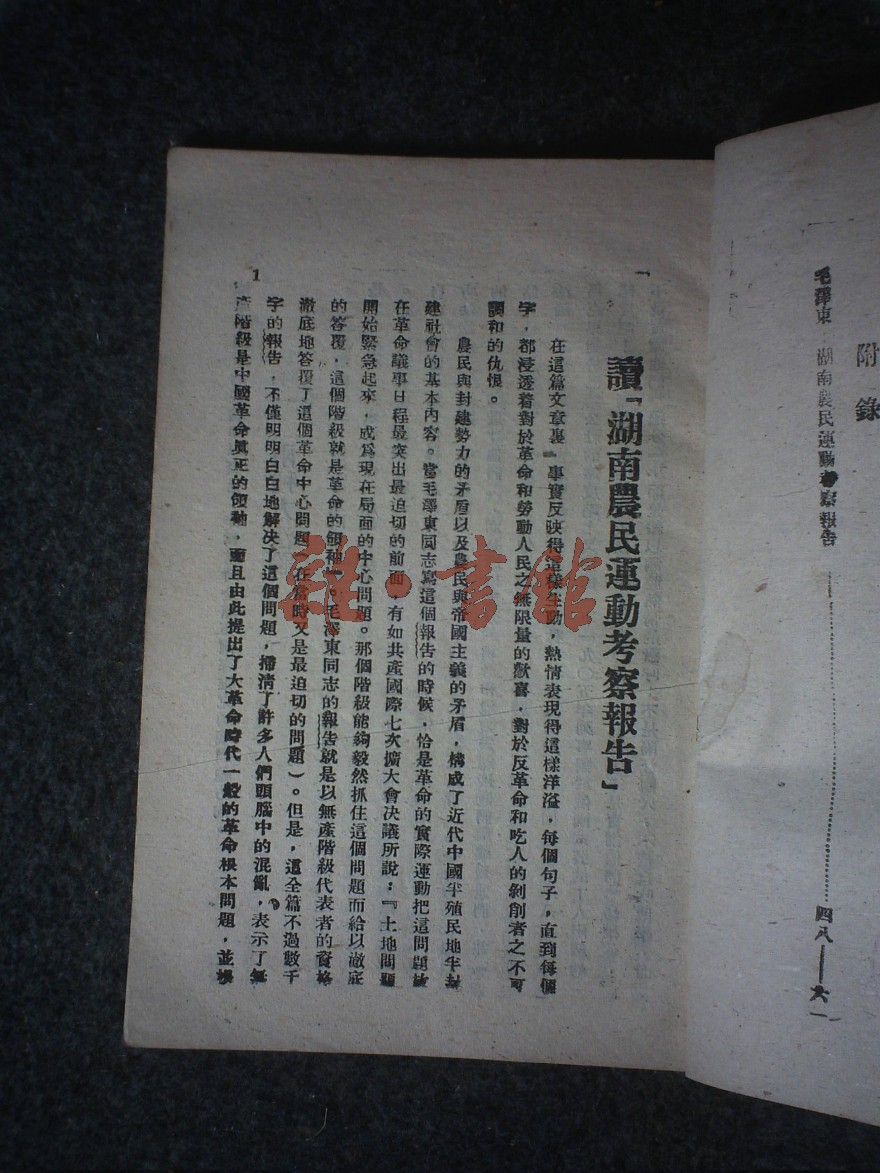 附錄
毛澤東 湖南農民運動考察報告……四八——六一
一
讀「湖南農民運動考察報告」
在這篇文章裏，事實反映得這樣生動，熱情表現得這樣洋溢，每個句子，直到每個
字，都浸透着對於革命和勞動人民之無限量的歡喜，對於反革命和吃人的剝削者之不可
調和的仇恨。
農民與封建勢力的矛盾以及農民與帝國主義的矛盾，構成了近代中國半殖民地半封
建社會的基本內容。當毛澤東同志寫這個報告的時候，恰是革命的實際運動把這問題放
在革命議事日程最突出最迫切的前面，有如共產國際七次擴大會決議所說：『土地問題
開始緊急起來，成為現在局面的中心問題。那個階級能夠毅然抓住這個問題而給以澈底
的答覆，這個階級就是革命的領袖』。毛澤東同志的報告就是以無產階級代表者的資格
澈底地答覆了這個革命中心問題（在當時又是最迫切的問題）。但是，這全篇不過數千
字的報告，不僅明明白白地解決了這個問題，掃清了許多人們頭腦中的混亂，表示了無
產階級是中國革命眞正的領袖，而且由此提出了大革命時代一般的革命根本問題，並根
1
雜·書館